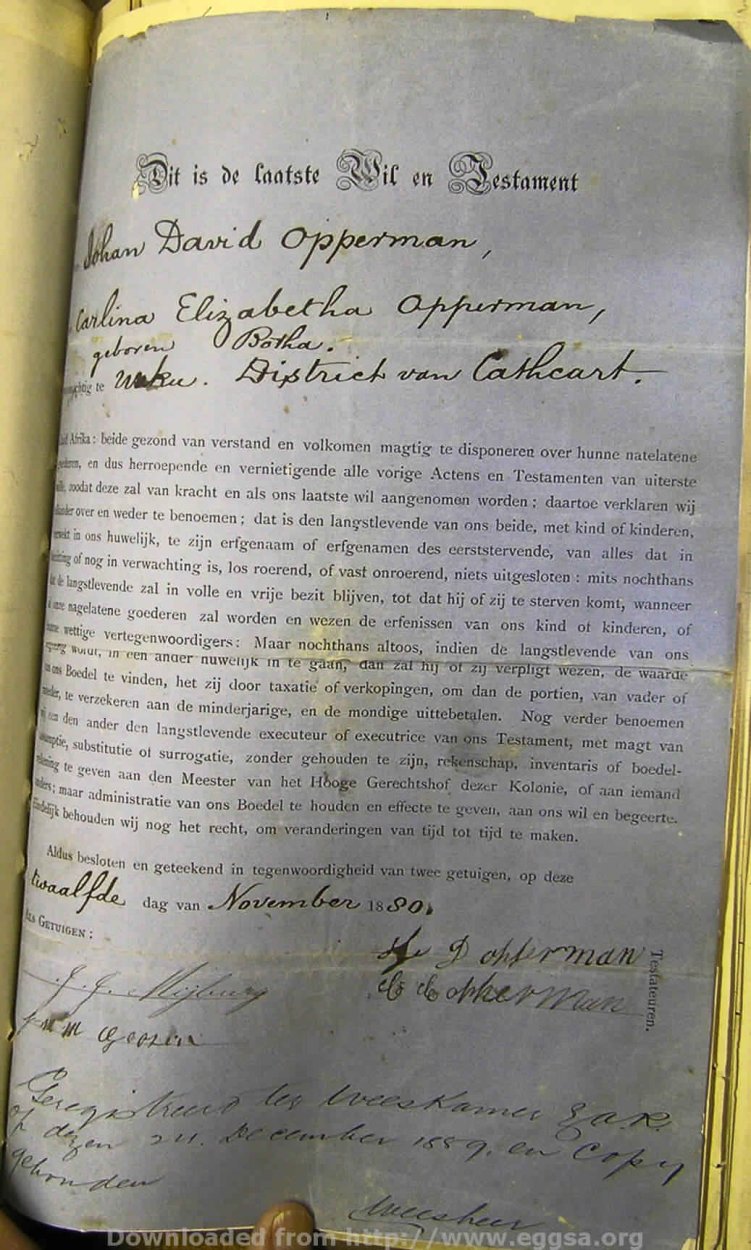 Dit is de laatste Wil en Testament
Johan David Opperman,
Carlina Elizabetha Opperman,
geboren Botha.
te District van Cathcart.
Afrika: beide gezond van verstand en volkomen magtig te disponeren over hunne natelatene
en dus herroepende en vernietigende alle vorige Actens en Testamenten van uiterste
zoodat deze zal van kracht en als ons laatste wil aangenomen worden; daartoe verklaren wij
over en weder te benoemen; dat is den langstlevende van ons beide, met kind of kinderen,
in ons huwelijk, te zijn erfgenaam of erfgenamen des eerststervende, van alles dat in
of nog in verwachting is, los roerend, of vast onroerend, niets uitgesloten: mits nochthans
de langstlevende zal in volle en vrije bezit blijven, tot dat hij of zij te sterven komt, wanneer
onze nagelatene goederen zal worden en wezen de erfenissen van ons kind of kinderen, of
wettige vertegenwoordigers: Maar nochthans altoos, indien de langstlevende van ons
wordt, in een ander huwelijk in te gaan, dan zal hij of zij verpligt wezen, de waarde
van ons Boedel te vinden, het zij door taxatie of verkopingen, om dan de portien, van vader of
moeder, te verzekeren aan de minderjarige, en de mondige uittebetalen. Nog verder benoemen
wij een den ander den langstlevende executeur of executrice van ons Testament, met magt van
substitutie of surrogatie, zonder gehouden te zijn, rekenschap, inventaris of boedel-
rekening te geven aan den Meester van het Hooge Gerechtshof dezer Kolonie, of aan iemand
anders; maar administratie van ons Boedel te houden en effecte te geven, aan ons wil en begeerte.
Eindelijk behouden wij nog het recht, om veranderingen van tijd tot tijd te maken.
Aldus besloten en geteekend in tegenwoordigheid van twee getuigen, op deze
twaalfde dag van November 1880.
Als Getuigen:
D opperman
Testateuren.
C E opperman
J. J. Mijburg
M Goosen
Geregistreerd ter Weeskamer Z.A.R.
op dezen 24. December 1889. en Copy
gehouden
Weesheer
Downloaded from http://www.eggsa.org